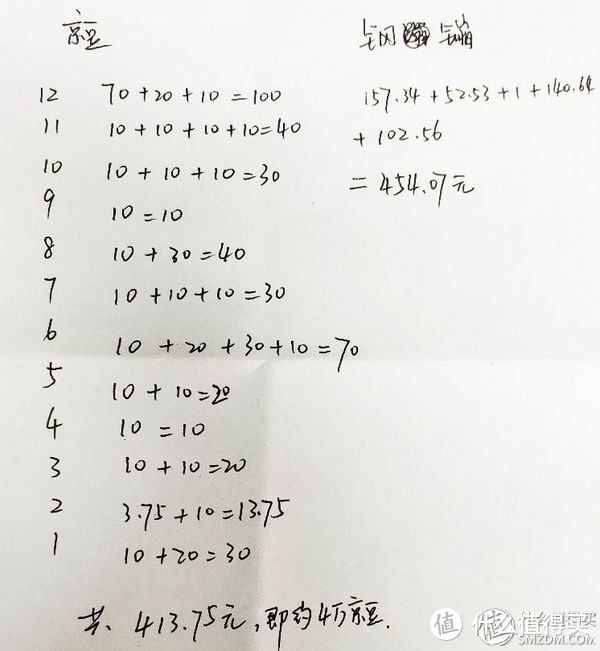 京豆
12 70+20+10=100
11 10+10+10+10=40
10 10+10+10=30
9 10=10
8 10+30=40
7 10+10+10=30
6 10+20+30+10=70
5 10+10=20
4 10=10
3 10+10=20
2 3.75+10=13.75
1 10+20=30
共. 413.75元,即约4万京豆.
157.34+52.53+1+140.64
+102.56
=454.07元
值 什么值得买
SMZDM.COM